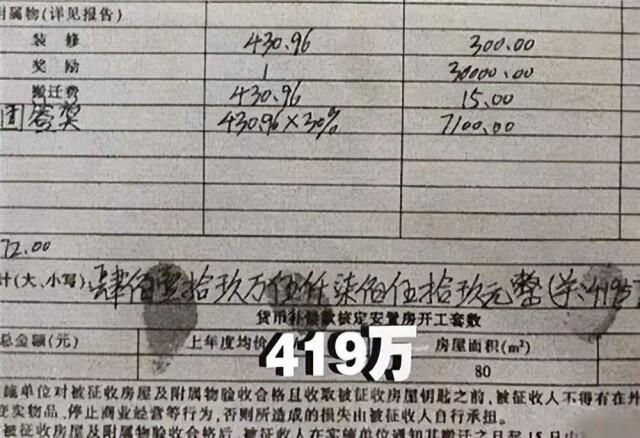 附属物(详见报告)
装修 430.96 300.00
奖励 1 30000.00
搬迁费 430.96 15.00
团签奖 430.96×30% 7100.00
72.00
计(大、小写) 肆佰壹拾玖万伍仟柒佰伍拾玖元整(¥:4195
货币补偿款核定安置房开工套数
总金额(元) 上年度均价 房屋面积(m²)
419万
80
施单位对被征收房屋及附属物验收合格且收取被征收房屋钥匙之前,被征收人不得有在外
变卖物品、停止商业经营等行为,否则所造成的损失由被征收人自行承担。
被征收房屋及附属物验收合格后,被征收人在实施单位通知其搬迁之日起15日